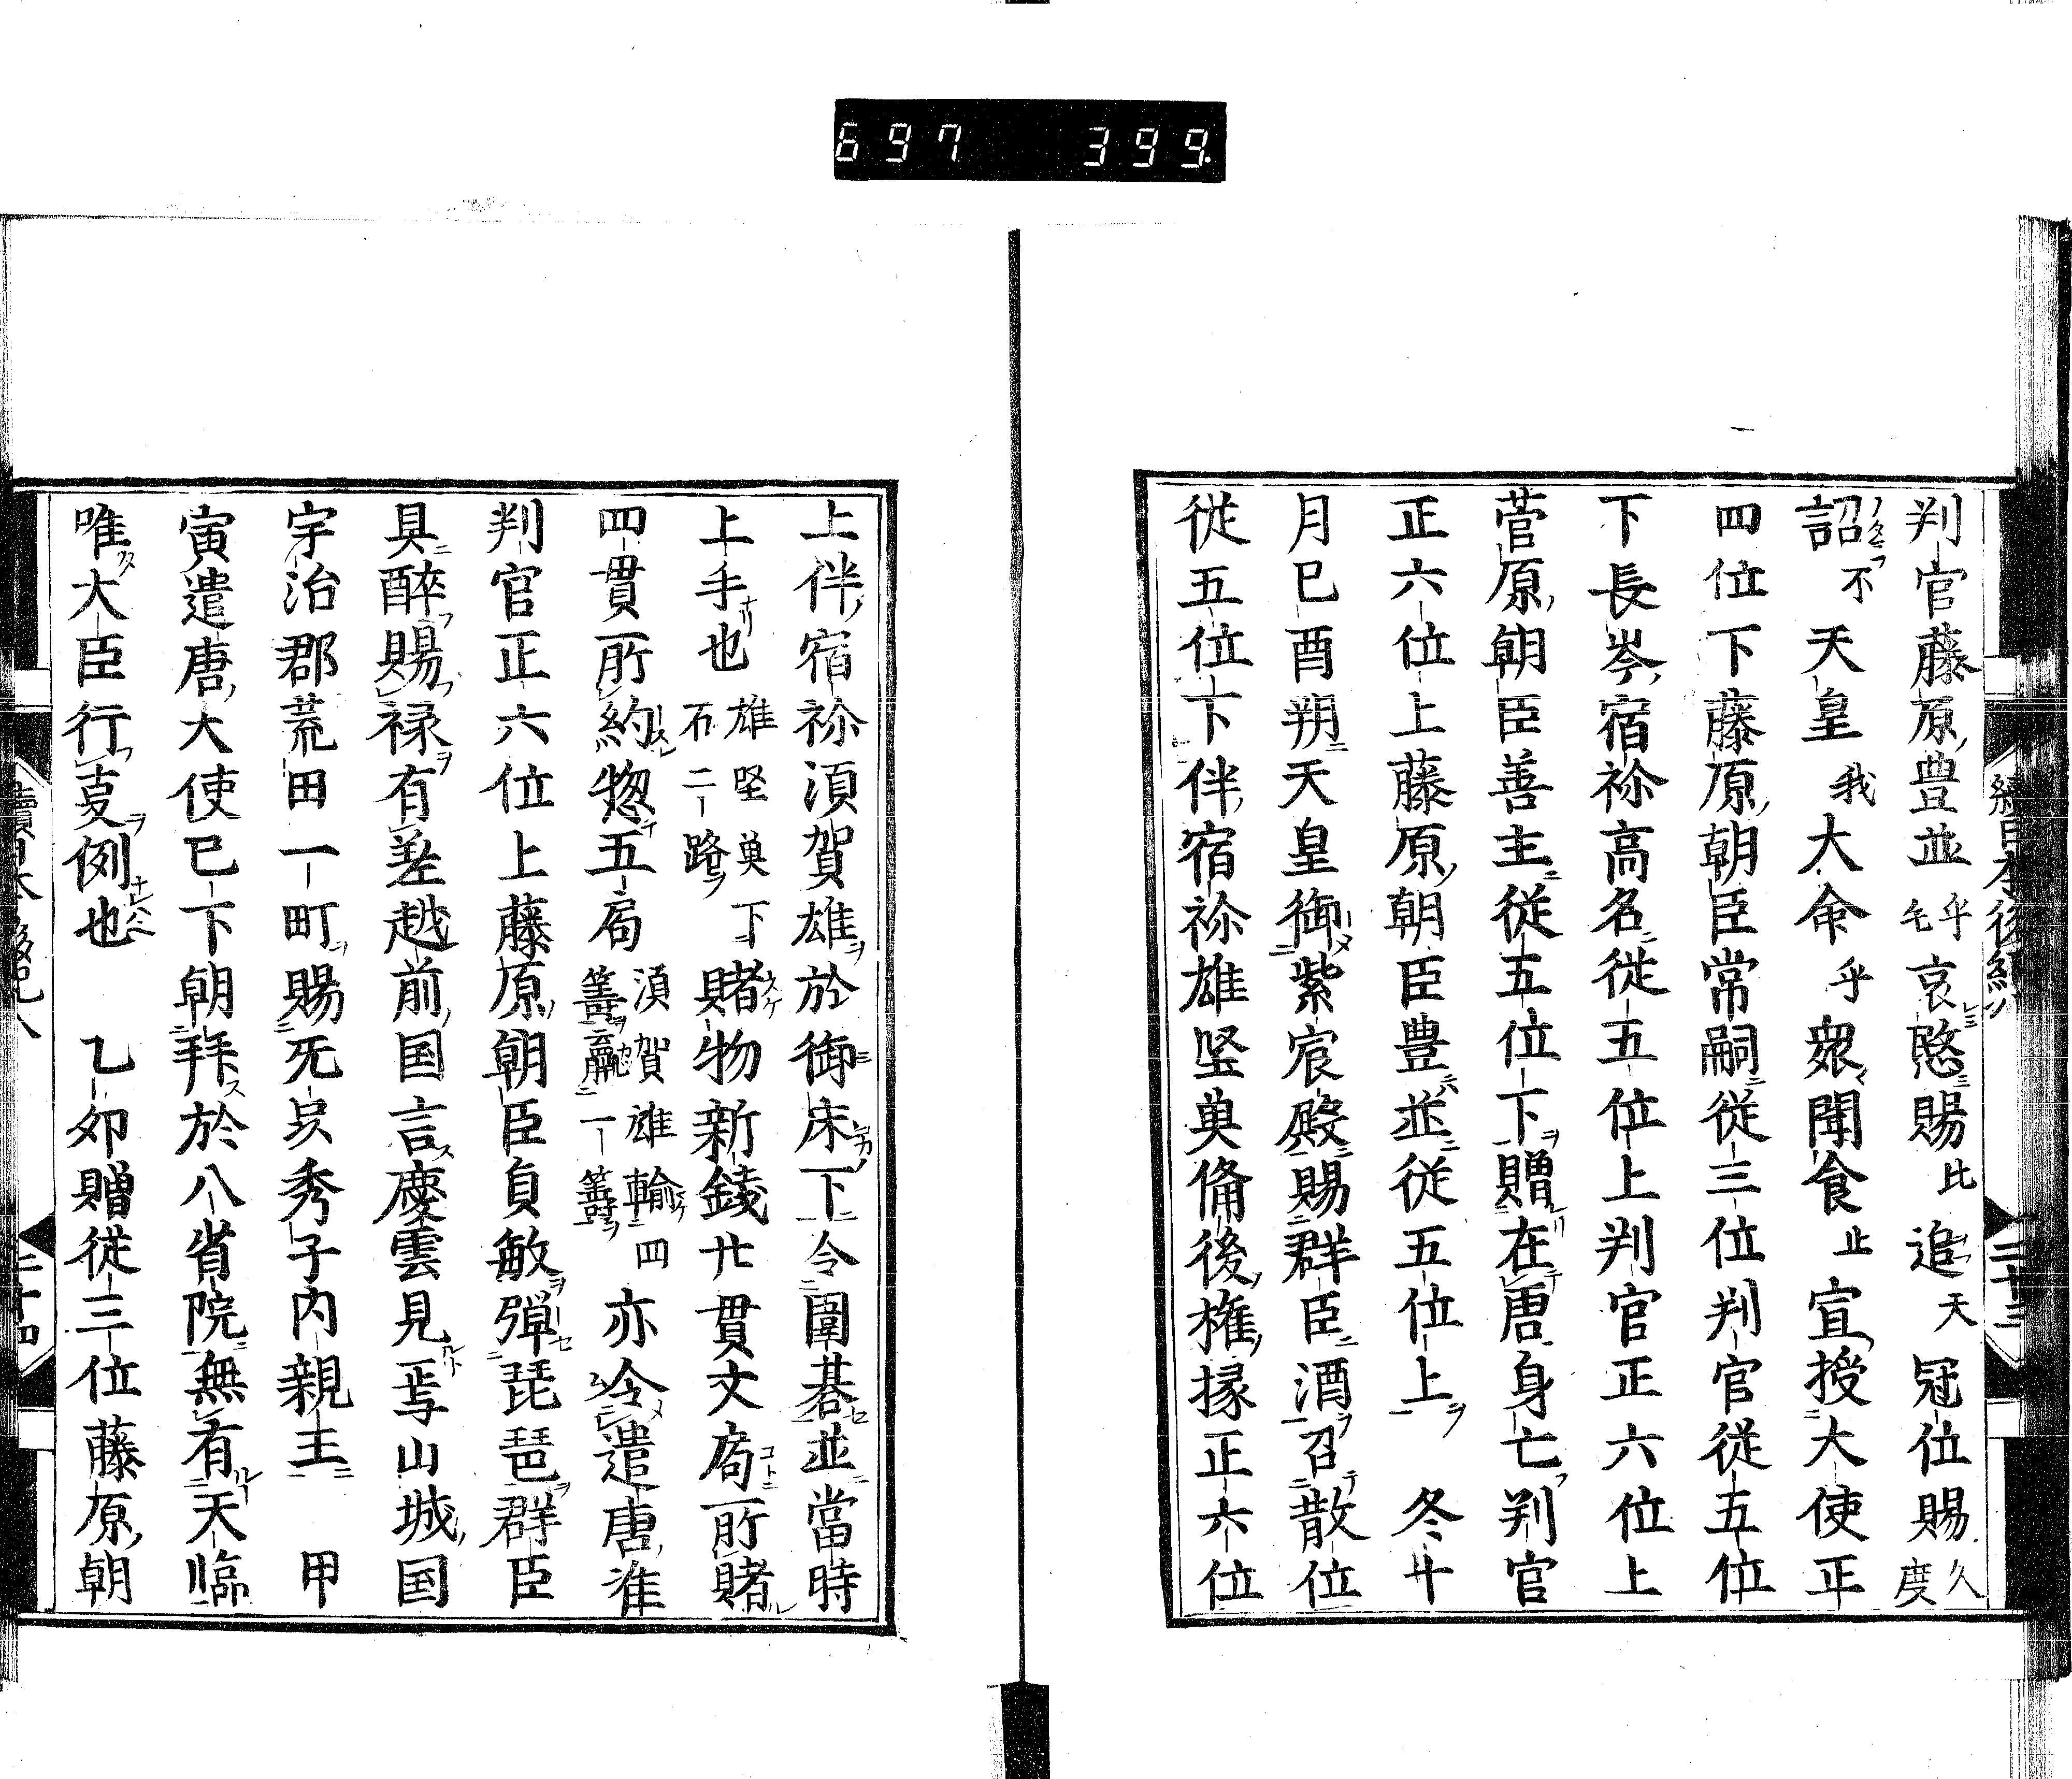 697 399
判官藤原豊並乎毛哀愍賜比追天冠位賜久度
詔不天皇我大命乎衆聞食止宣授大使正
四位下藤原朝臣常嗣従三位判官従五位
下長岑宿祢高名従五位上判官正六位上
菅原朝臣善主従五位下贈在唐身亡判官
正六位上藤原朝臣豊並従五位上冬十
月已酉朔天皇御紫宸殿賜群臣酒召散位
従五位下伴宿祢雄堅奥備後権掾正六位
上伴宿祢須賀雄於御床下令圍碁並當時
上手也雄堅奥下石二路賭物新錢廿貫文局所賭
四貫所約惣五局須賀雄輸四籌贏一籌亦令遣唐准
判官正六位上藤原朝臣貞敏弾琵琶群臣
具醉賜禄有差越前国言慶雲見焉山城国
宇治郡荒田一町賜无品秀子内親王 甲
寅遣唐大使已下朝拝於八省院無有天臨
唯大臣行事例也 乙卯贈従三位藤原朝
續日本後紀
二十三
續日本後紀八
二十四